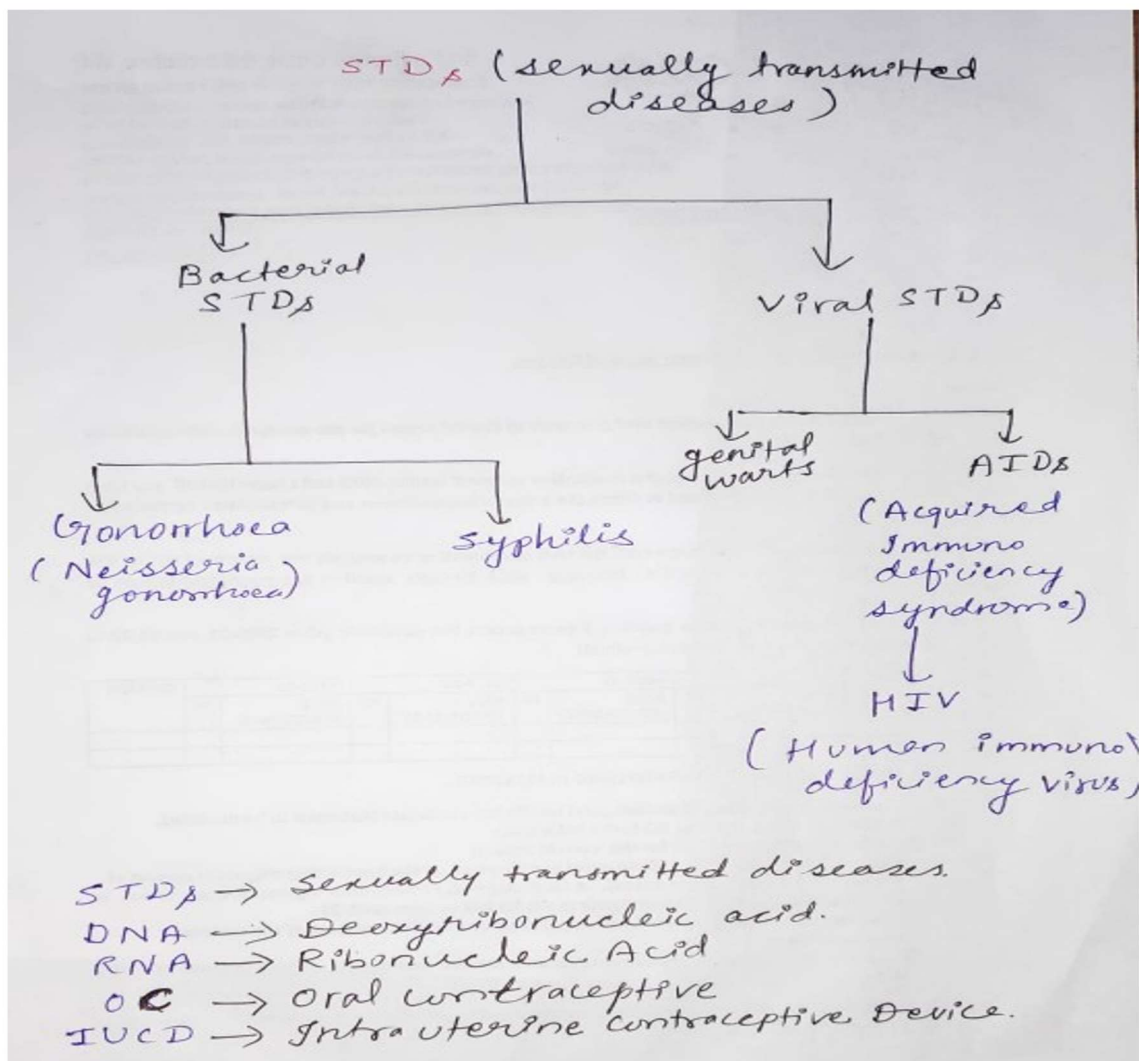 STDs (sexually transmitted
diseases)
Bacterial
STDs
Viral STDs
genital
warts
AIDs
Gonorrhoea
(Neisseria
gonorrhoea)
Syphilis
(Acquired
Immuno
deficiency
syndrome)
HIV
(Human immuno
deficiency virus)
STDs → Sexually transmitted diseases.
DNA → Deoxyribonucleic acid.
RNA → Ribonucleic Acid
OC → Oral contraceptive
IUCD → Intra uterine contraceptive Device.